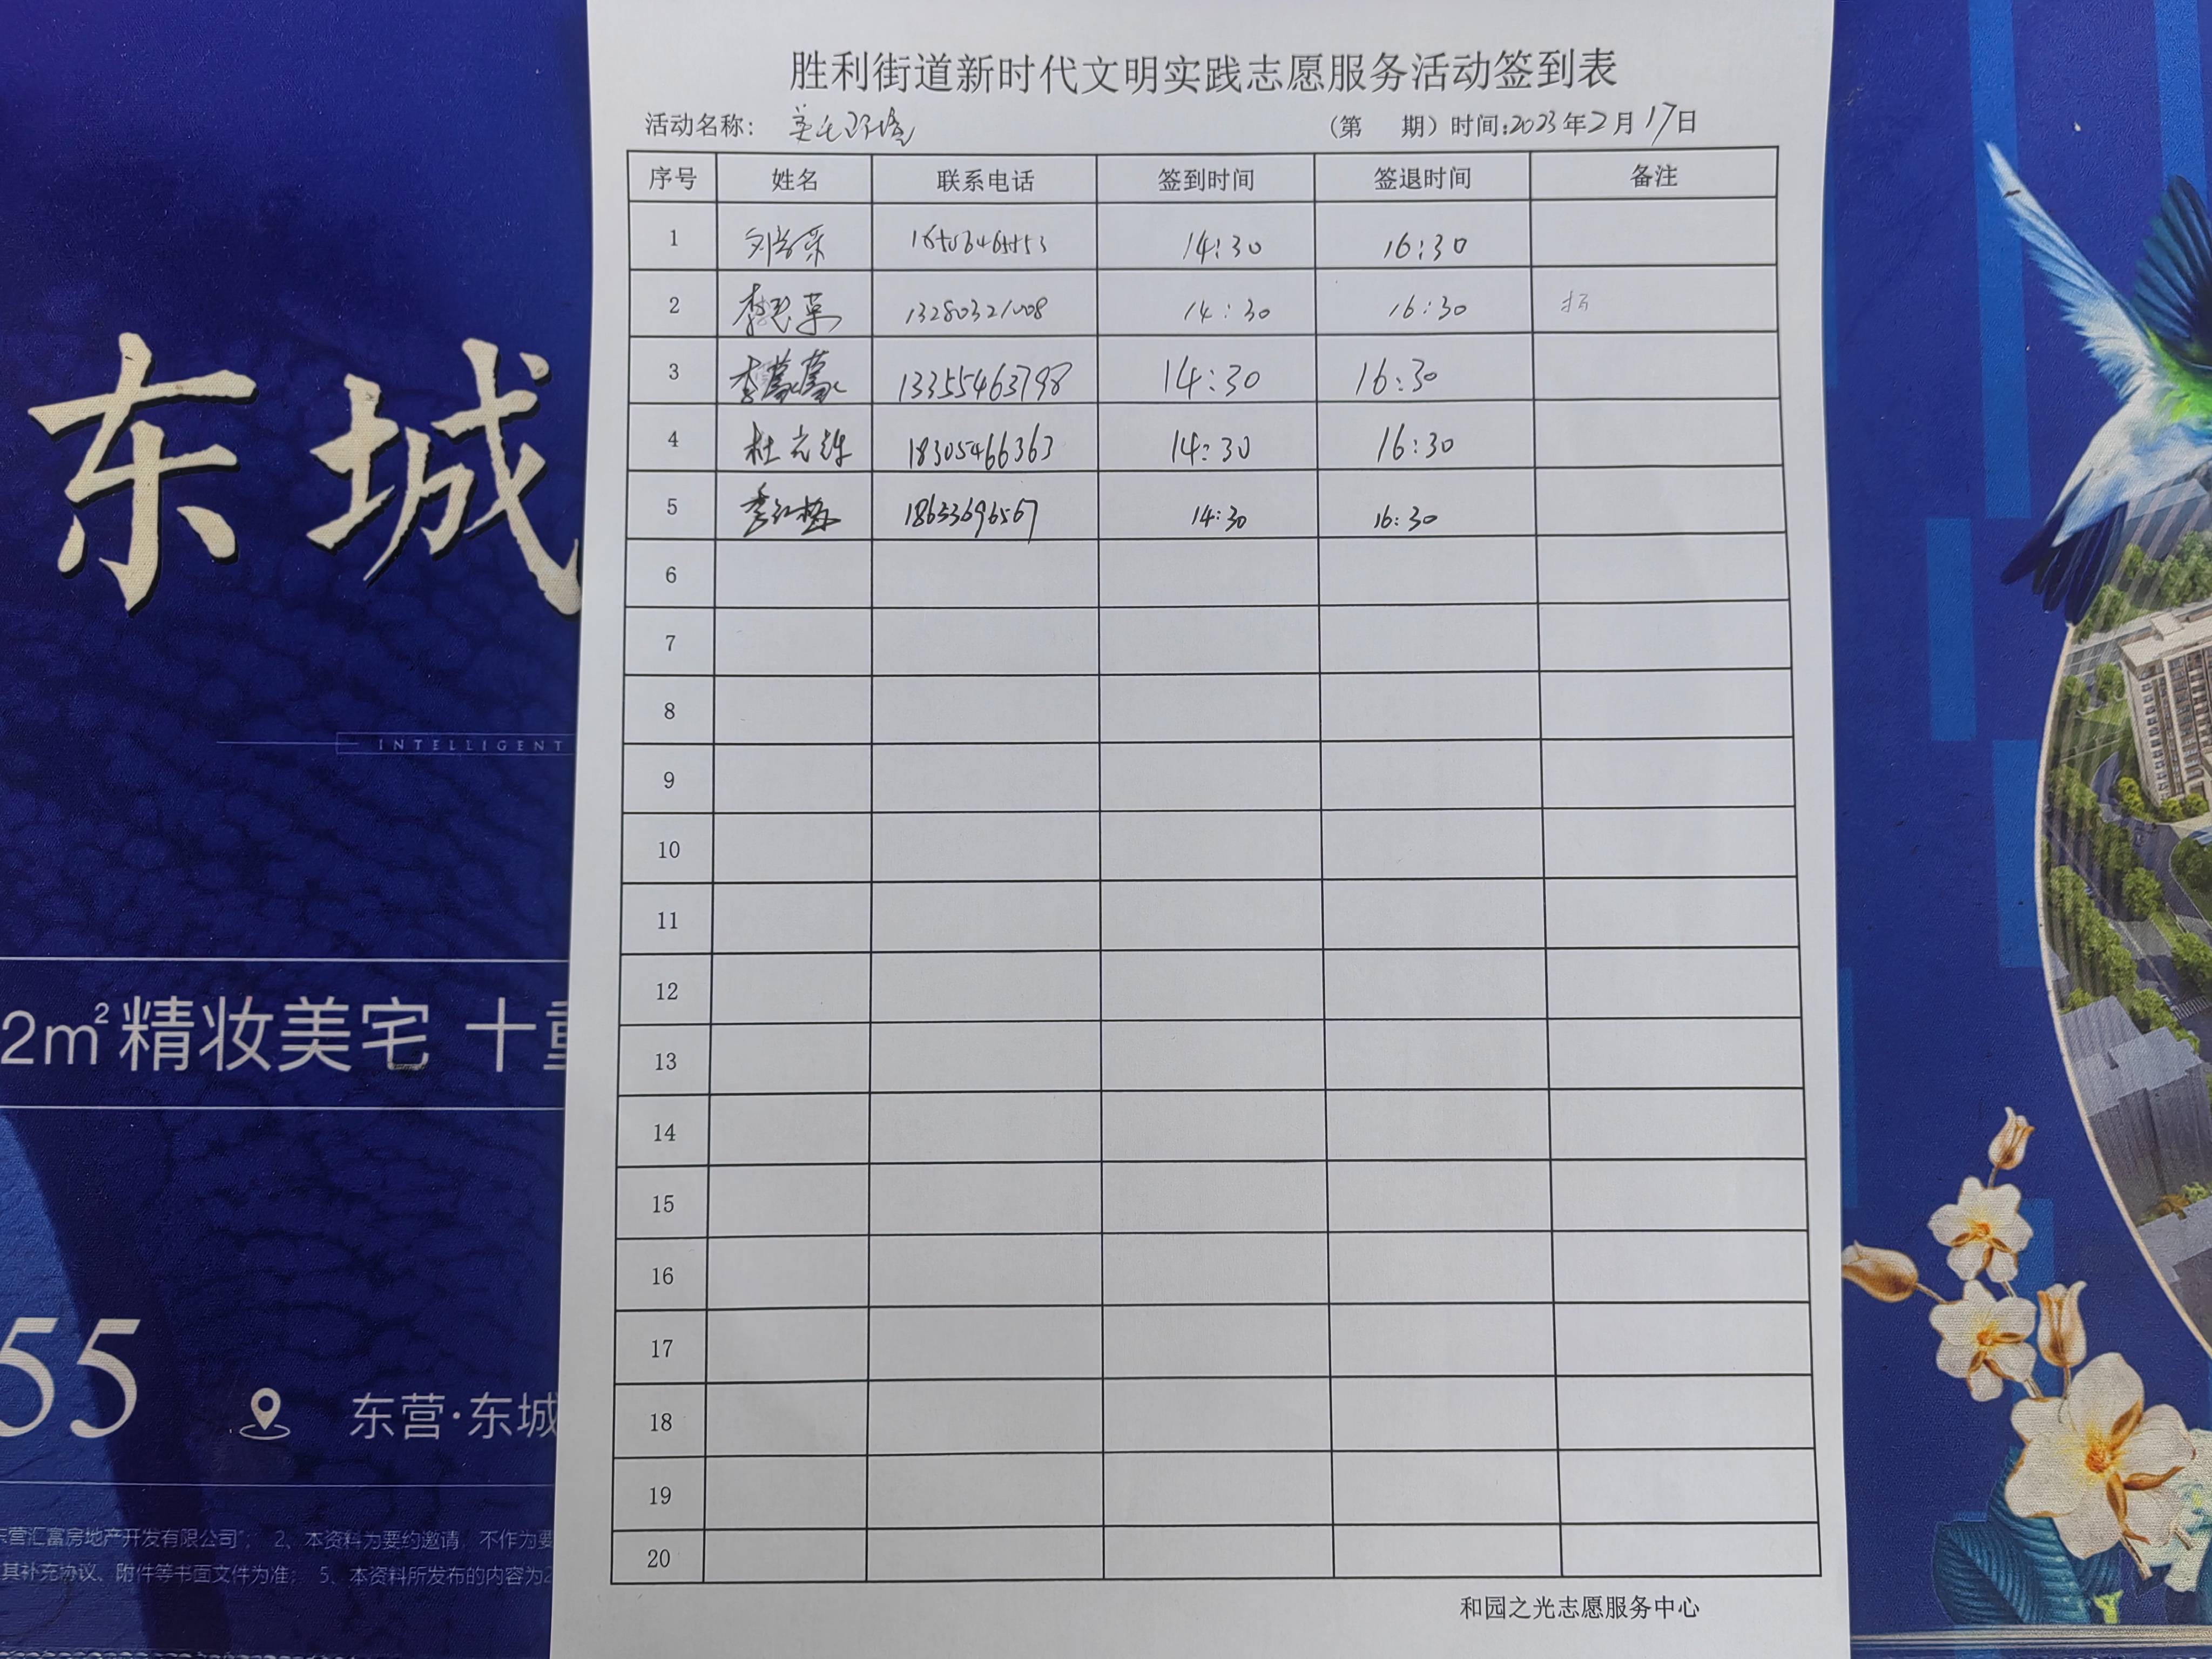 胜利街道新时代文明实践志愿服务活动签到表
活动名称： 美化环境 （第 期）时间:2023年2月17日
序号 姓名 联系电话 签到时间 签退时间 备注
1 14:30 16:30
2 14:30 16:30
3 李蒙蒙 13355463798 14:30 16:30
4 杜 18305466363 14:30 16:30
5 18653696567 14:30 16:30
6
7
8
9
10
11
12
13
14
15
16
17
18
19
20
和园之光志愿服务中心
东城
INTELLIGENT
2m²精妆美宅 十重
55
东营·东城
东营汇富房地产开发有限公司"； 2、本资料为要约邀请，不作为要
其补充协议、附件等书面文件为准； 5、本资料所发布的内容为2